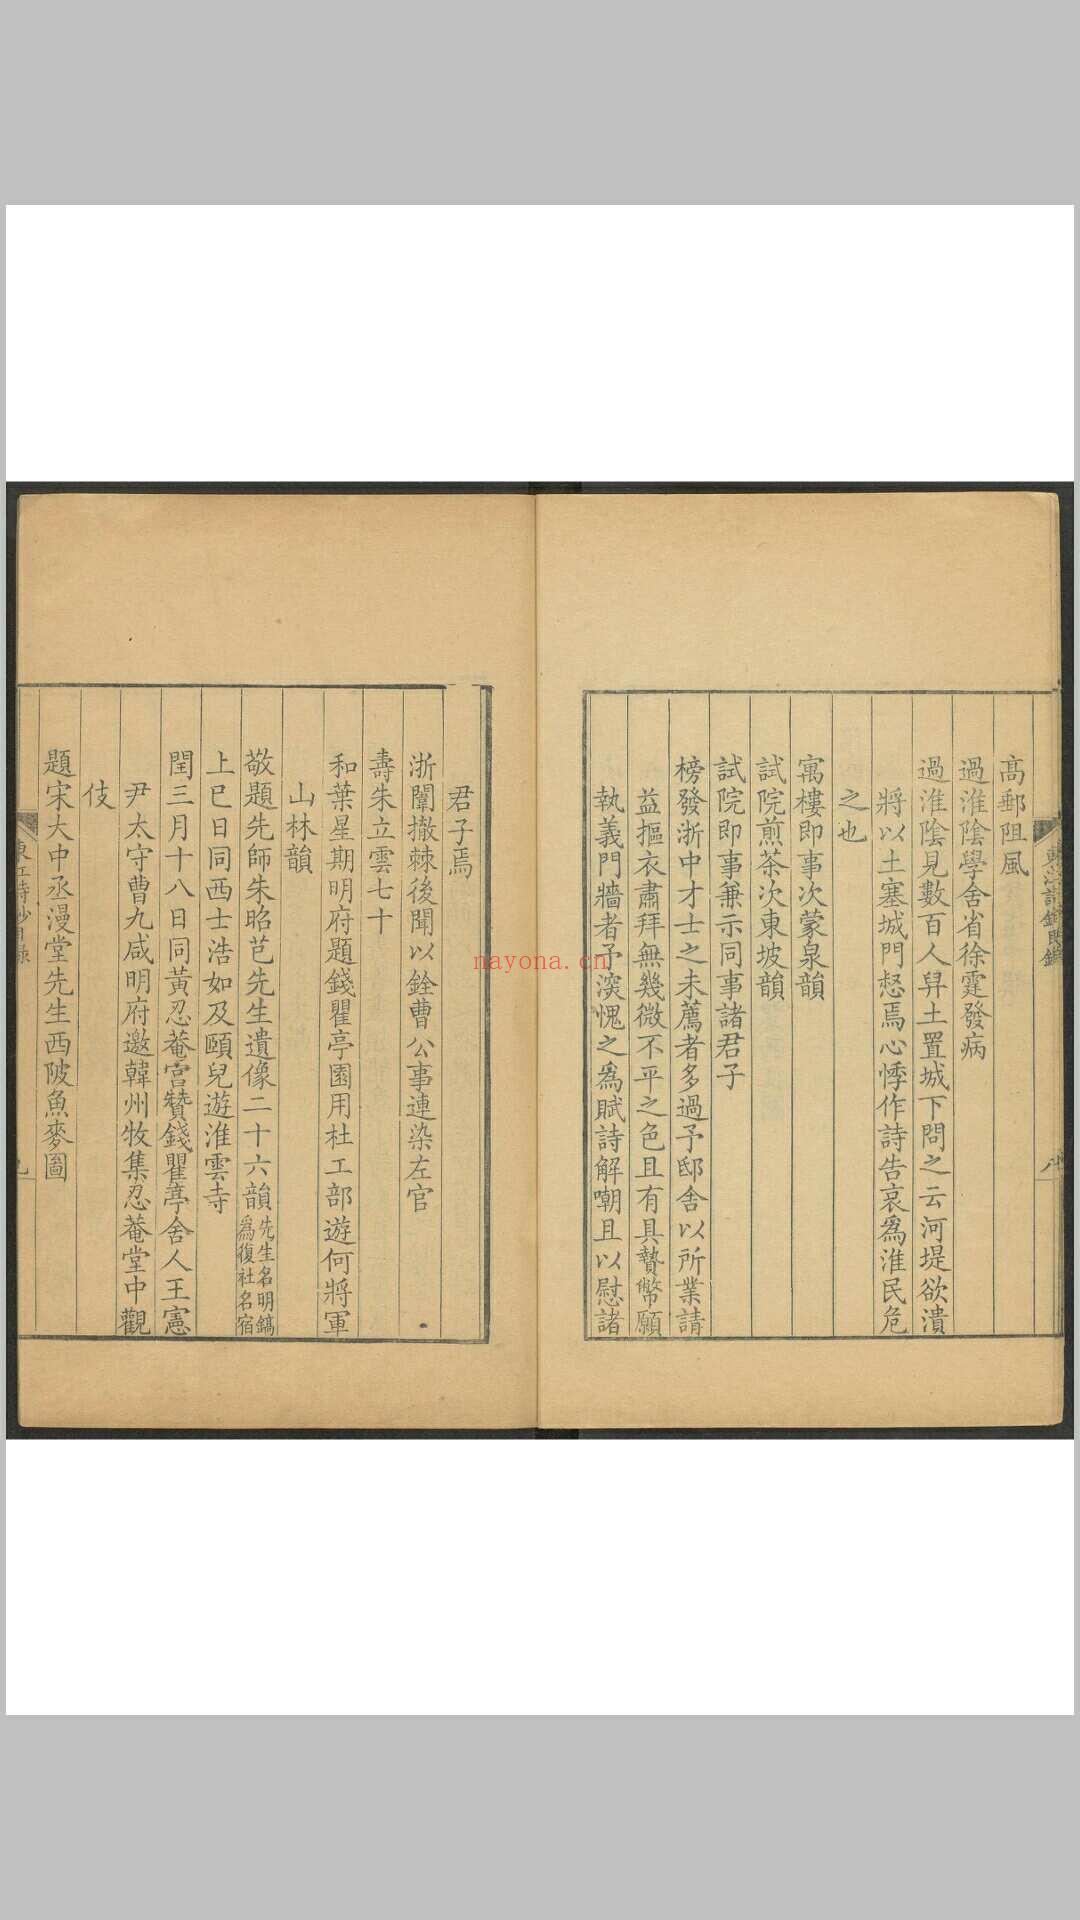 高郵阻風
過淮陰學舍省徐霆發病
過淮陰見數百人舁土置城下問之云河堤欲潰
將以土塞城門惄焉心悸作詩告哀爲淮民危
之也
寓樓即事次蒙泉韻
試院煎茶次東坡韻
試院即事兼示同事諸君子
榜發浙中才士之未薦者多過予邸舍以所業請
益摳衣肅拜無幾微不平之色且有具贄幣願
執義門牆者予深愧之爲賦詩解嘲且以慰諸
君子焉
浙闈撤棘後聞以銓曹公事連染左官
壽朱立雲七十
和葉星期明府題錢瞿亭園用杜工部遊何將軍
山林韻
敬題先師朱昭芑先生遺像二十六韻先生名明鎬
爲復社名宿
上巳日同西士浩如及頤兒遊淮雲寺
閏三月十八日同黃忍菴宮贊錢瞿亭舍人王憲
尹太守曹九咸明府邀韓州牧集忍菴堂中觀
伎
題宋大中丞漫堂先生西陂魚麥圖
東江詩鈔目錄
八
東江詩鈔目錄
九
nayona.cn